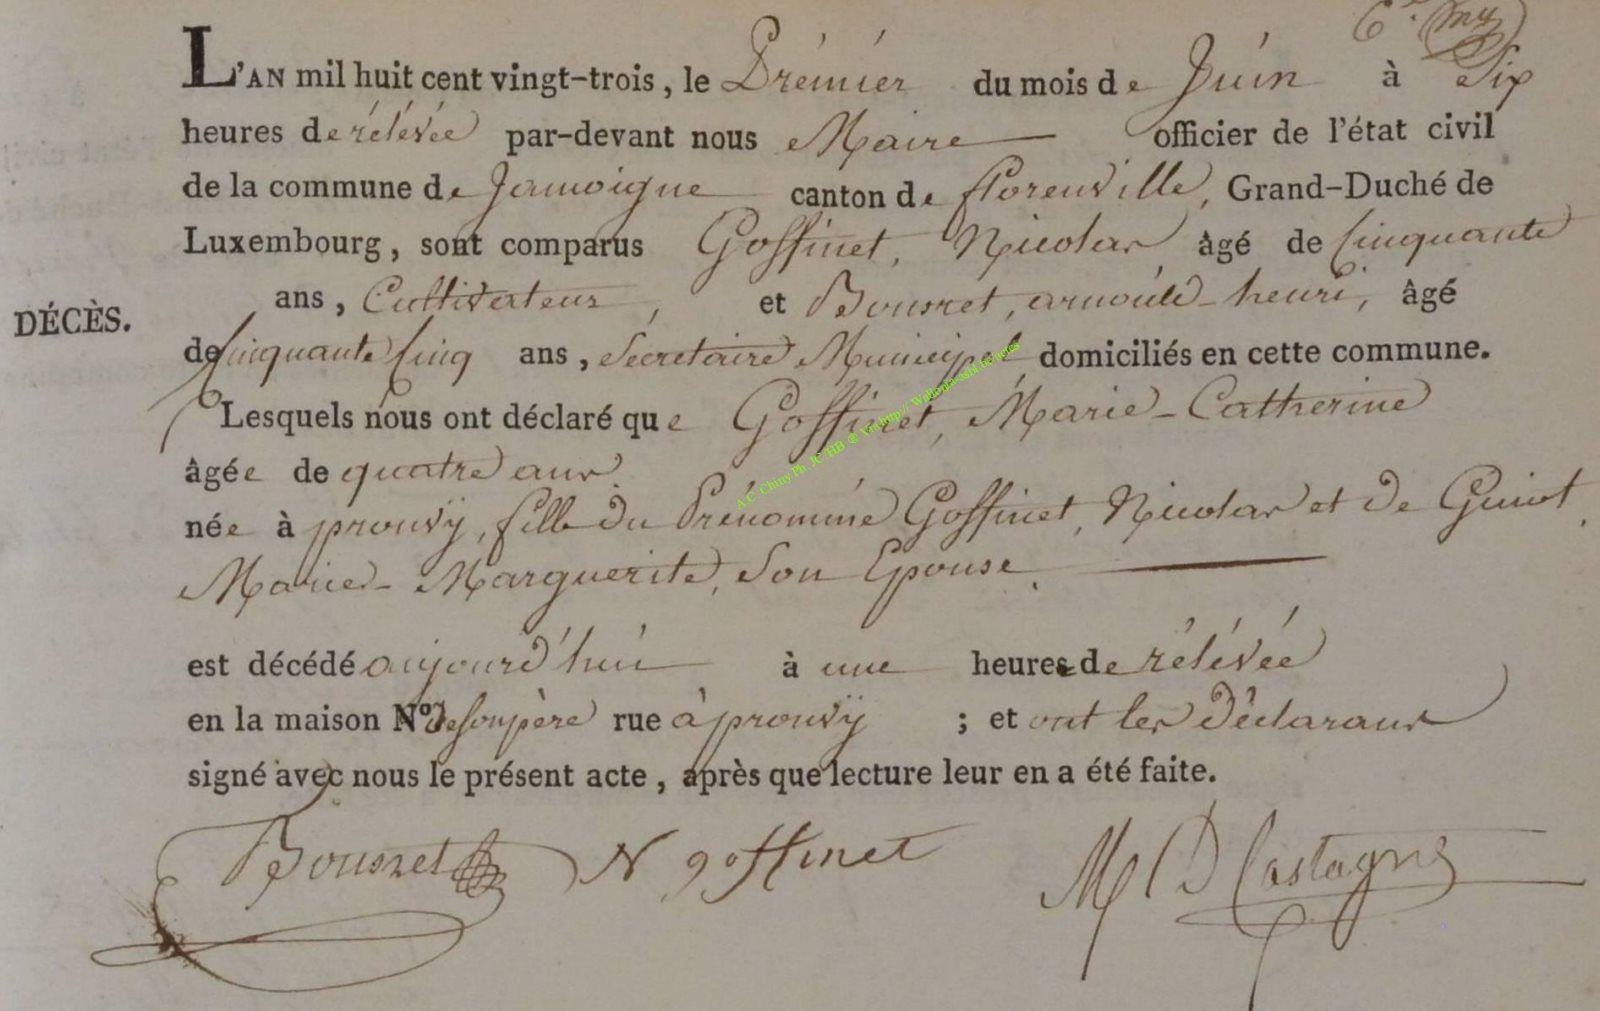 L'AN mil huit cent vingt-trois, le Prémiér du mois de Juin à Six
heures de rélévée par-devant nous Maire officier de l'état civil
de la commune de Jamoigne canton de florenville, Grand-Duché de
Luxembourg, sont comparus Goffinet, Nicolas âgé de Cinquante
ans, Cultivateur, et Bousret, arnould-henri, âgé
DÉCÈS.
de Cinquante Cinq ans, Sécrétaire Municipal domiciliés en cette commune.
Lesquels nous ont déclaré que Goffinet, Marie-Catherine
âgée de quatre ans.
née à prouvÿ, fille du Prénommé Goffinet, Nicolas et de Guiot,
Marie-Marguerite, Son Epouse.
est décédé aujourd'hui à une heure de rélévée
en la maison N° de Son père rue à prouvÿ ; et ont les Déclarans
signé avec nous le présent acte, après que lecture leur en a été faite.
Bousret N goffinet M D Castagne
A C Chiny Ph JC HB ® Via http://Wallonia-asbl.be/actes